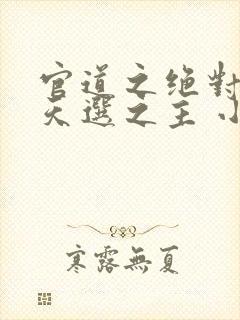 官道之绝對
天選之主 小
寒露無夏